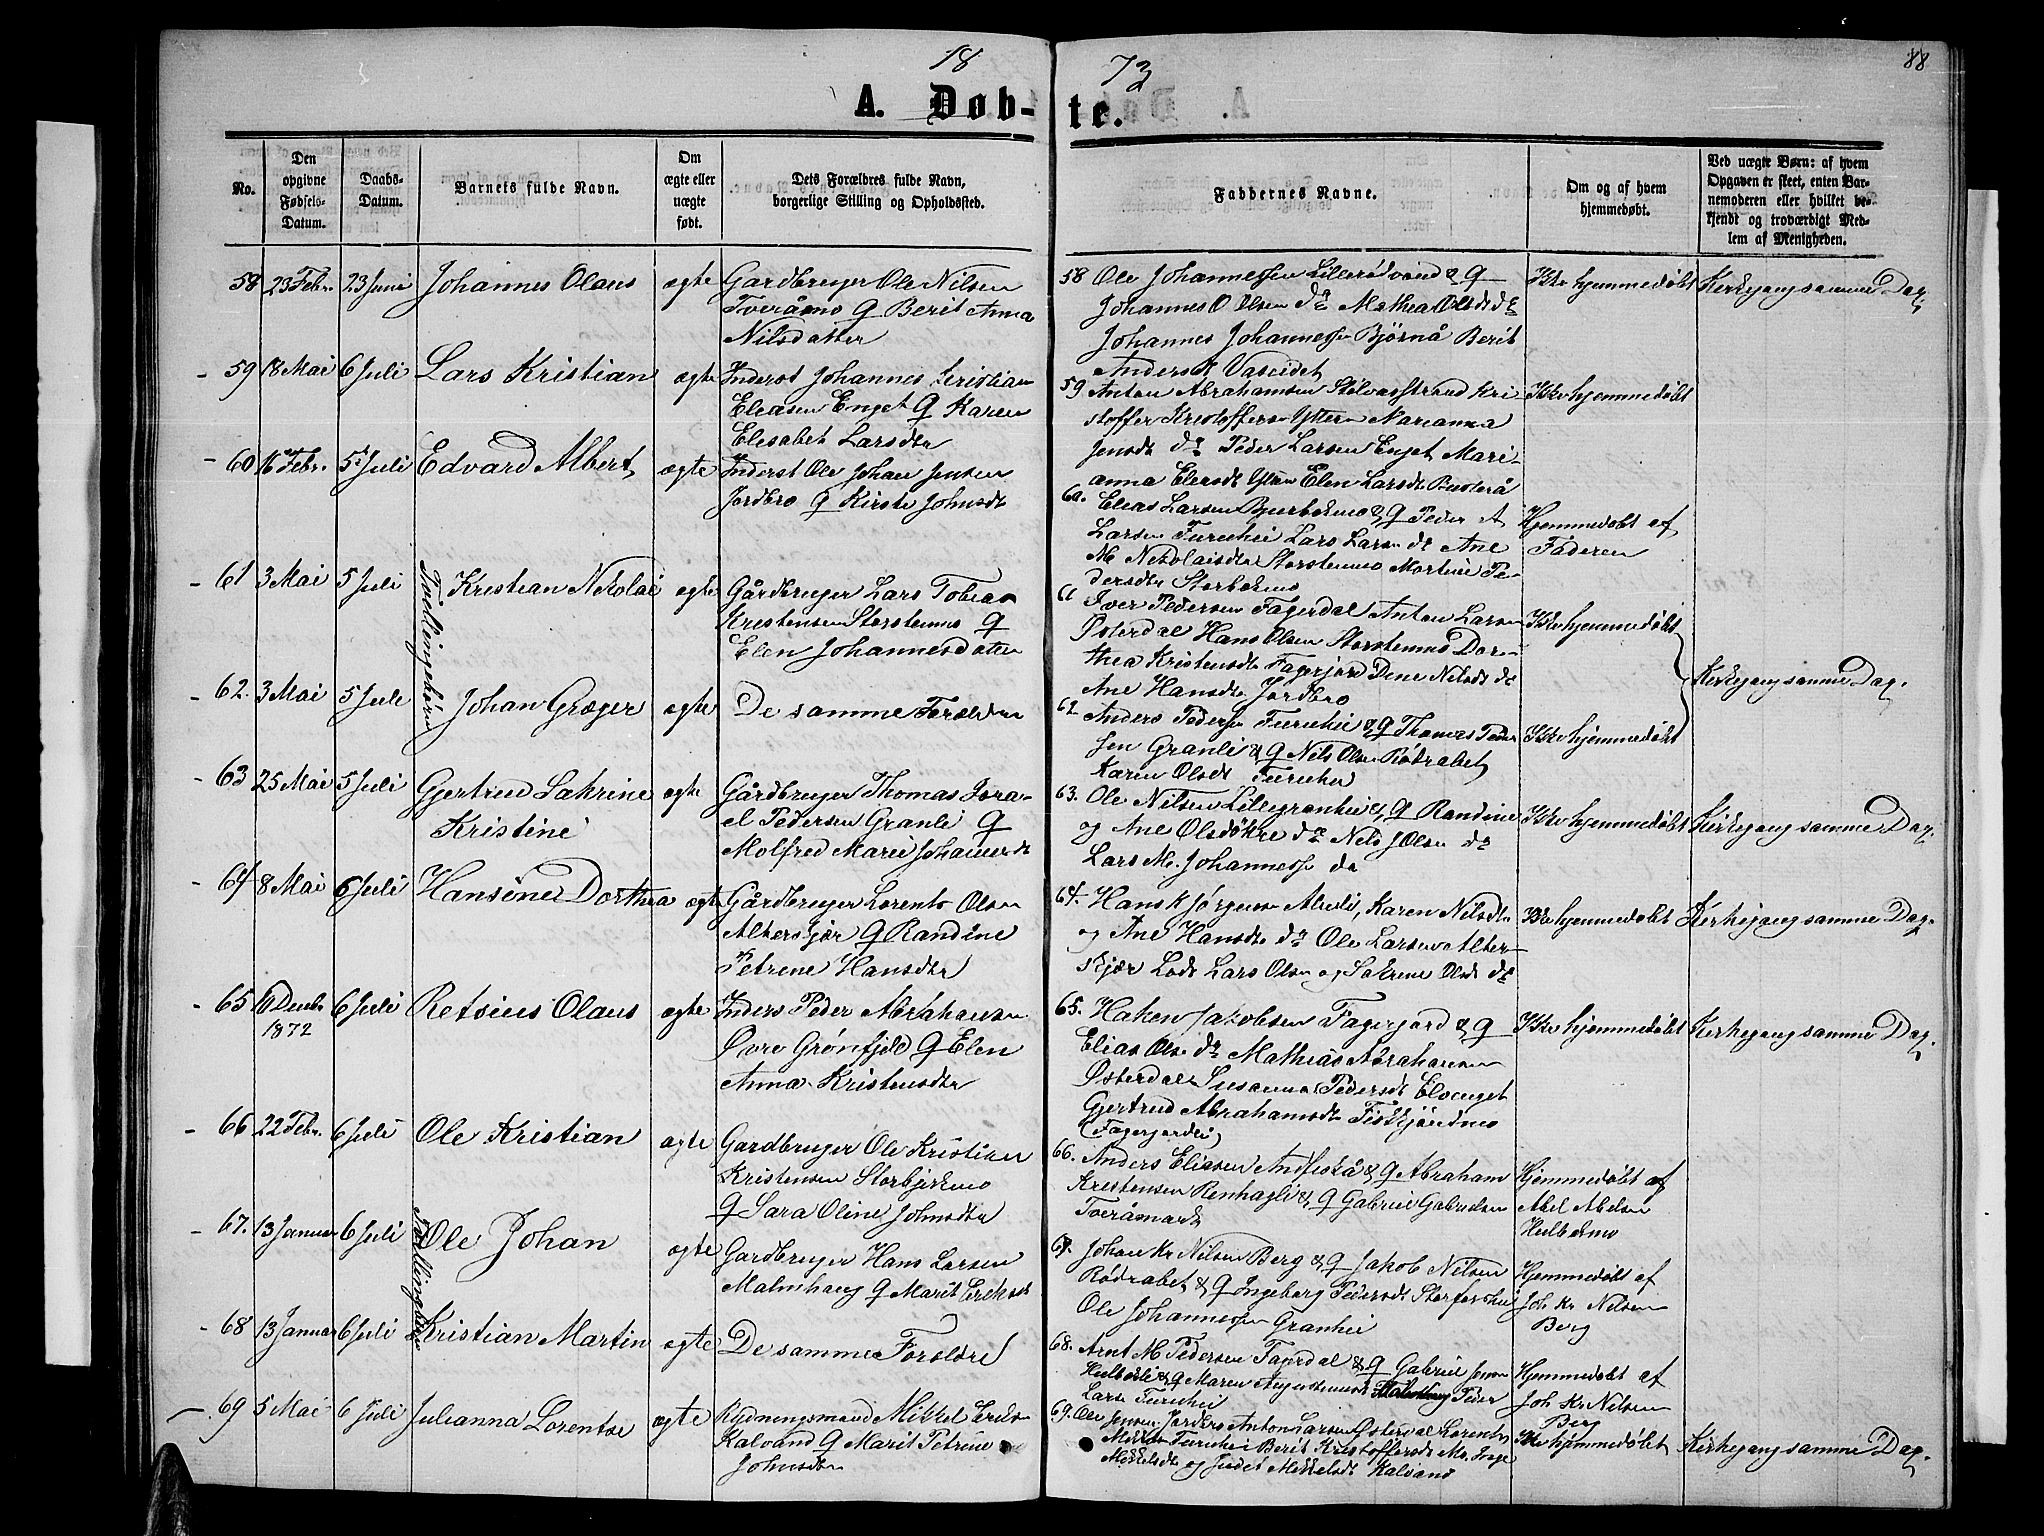 18 73
88
A. Døb- te.
No.
Den opgivne Fødsels-Datum.
Daabs-Datum.
Barnets fulde Navn.
Om ægte eller uægte født.
Dets Forældres fulde Navn, borgerlige Stilling og Opholdssted.
Faddernes Navne.
Om og af hvem hjemmedøbt.
Ved uægte Børn: af hvem Opgaven er skeet, enten Barnemoderen eller hvilket bekjendt og troværdigt Medlem af Menigheden.
58 23 Febr. 23 Juni Johannes Olaus ægte Gardbruger Ole Nilsen
Tveråmo & Berit Anna
Nilsdatter
58 Ole Johannessen Lillerødvand & q
Johannes O Olsen do Mathea Olsdt do
Johannes Johannessen Bjørnå Berit
Andersdt Vasvidet
Ikke hjemmedøbt Kirkegang samme Dag.
59 18 Mai 6 Juli Lars Kristian ægte Inderst Johannes Kristian
Eleasen Enget & Karen
Elesabet Larsdtr
59 Anton Abrahamsen Stolvasstrand Kri
stoffer Kristoffersen Ytteren Marianna
Jensdt do Peder Larsen Enget Mari-
anna Elersdt Yttren Elen Larsdt
Ikke hjemmedøbt
60 16 Febr. 5 Juli Edvard Albert ægte Inderst Ole Johan Jensen
Jordbro & Kirste Johnsdt
60. Elias Larsen & q Peder A
Larsen Furuhei Lars Larsen do Ane
M Nikolaisdtr Storstenmo Martine Pe-
dersdtr
Hjemmedøbt af
Faderen
61 3 Mai 5 Juli Kristian Nikolai ægte Gårdbruger Lars Tobias
Kristensen Storstenmo &
Elen Johannesdatter
Tvillingebørn
61 Iver Pedersen Fagerdal Anton Larsen
Østerdal Hans Olsen Storstenmo Dor-
thea Kristensdtr Fagerjord Dene Nilsdt do
Ane Hansdtr Jordbro
Ikke hjemmedøbt
Kirkegang samme Dag.
62. 3 Mai 5 Juli Johan Græger ægte De samme Forældre
62 Anders Pedersen Furuhei & q Thomas Peder
sen Granli & q Nils Olsen Rødrabet
Karen Olsdt Furuhei
Ikke hjemmedøbt
63 25 Mai 5 Juli Gjertrud Sakrine
Kristine
ægte Gårdbruger Thomas Isra-
el Pedersen Granli &
Molfred Maren Johansdt
63. Ole Nilsen Lillegranhei & q Randine
og Ane Olsdøtre do Nils J Olsen do
Lars M. Johannessen do
Ikke hjemmedøbt Kirkegang samme Dag.
64 8 Mai 6 Juli Hansine Dorthea ægte Gårdbruger Lorents Olsen
Alterskjær & Randine
Petrine Hansdtr
64. Hans K Jørgensen Karen Nilsdtr
og Ane Hansdtr do Ole Larsen Alter-
skjær Lods Lars Olsen og Sakrine Olsdt do
Ikke hjemmedøbt Kirkegang samme Dag.
65 Decbr. 1872 6 Juli Retsius Olaus ægte Inders Peder Abrahamsen
Øvre Grønfjeld & Elen
Anna Kristensdtr
65. Haken Jakobsen Fagerjord & q
Elias Olsen do Mathias Abrahamsen
Østerdal Susanna Pedersdt Elvenget
Gjertrud Abrahamsdtr
(Fagerjordli)
Ikke hjemmedøbt Kirkegang samme Dag.
66 22 Febr. 6 Juli Ole Kristian ægte Gardbruger Ole Kristian
Kristensen Storbjerkmo
& Sara Oline Johnsdtr
66. Anders Eliasen Andfiskå & q Abraham
Kristensen Renhagli & q Gabriel Gabrielsen
Tveråmark
Hjemmedøbt af
Abel Abelsen
67. 13 Januar 6 Juli Ole Johan ægte Gardbruger Hans Larsen
Malmhaug & Marit Eriksdt
Tvillingebør
67. Johan Kr Nilsen Berg & q Jakob Nilsen
Rødrabet & q Ingeborg Pedersdt Storforshei
Ole Johannessen Granhei
Hjemmedøbt af
Joh Kr Nilsen
Berg
68 13 Januar 6 Juli Kristian Martin ægte De samme Forældre
68. Arnt M Pedersen Fagerdal & q Gabriel
& q Maren Peder
Larsen Furuhei
Hjemmedøbt af
Joh Kr Nilsen
Berg
69 5 Mai 6 Juli Julianna Lorentse ægte Rydningsmand Mikkel Eriks
Kalvand & Marit Petrine
Johnsdtr
69. Ole Jensen Jordbro Anton Larsen Østerdal Lorents
Furuhei Berit Kristoffersdt Mo. Inge
Mikkelsdt og Judet Mikkelsdt Kalvand
Ikke hjemmedøbt Kirkegang samme Dag.